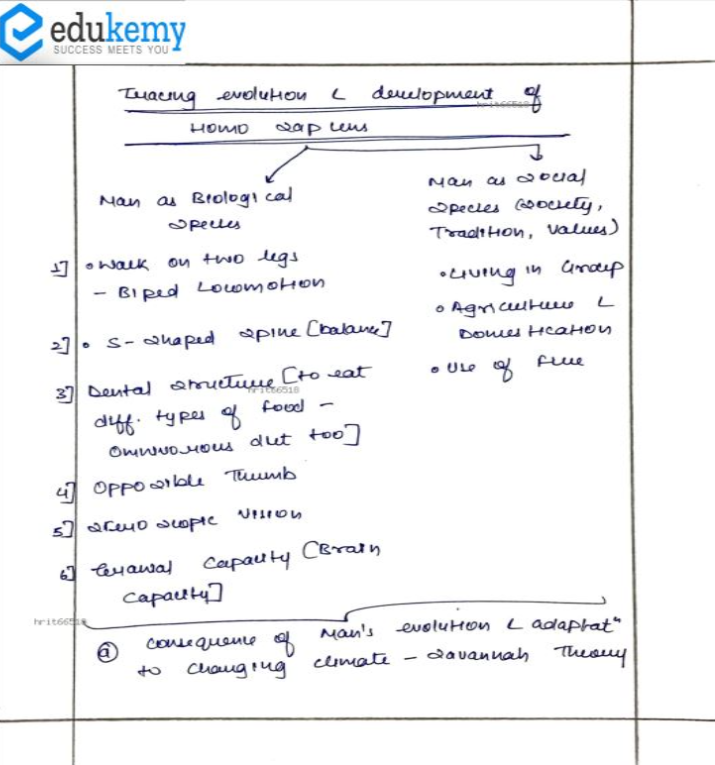 edukemy
SUCCESS MEETS YOU
Tracing evolution & development of
hrit66518
Homo sapiens
Man as Biological
species
1] • Walk on two legs
- Biped Locomotion
2] • S-shaped spine [balance]
3] Dental structure [to eat
hrit66518
diff. types of food -
omnivorous diet too]
4] Opposible Thumb
5] stereoscopic vision
6] Cranial Capacity [Brain
capacity]
Man as social
species (society,
Tradition, values)
• Living in Group
• Agriculture &
Domestication
• Use of fire
hrit66518
(a) consequence of Man's evolution & adaptatn
to changing climate - savannah Theory